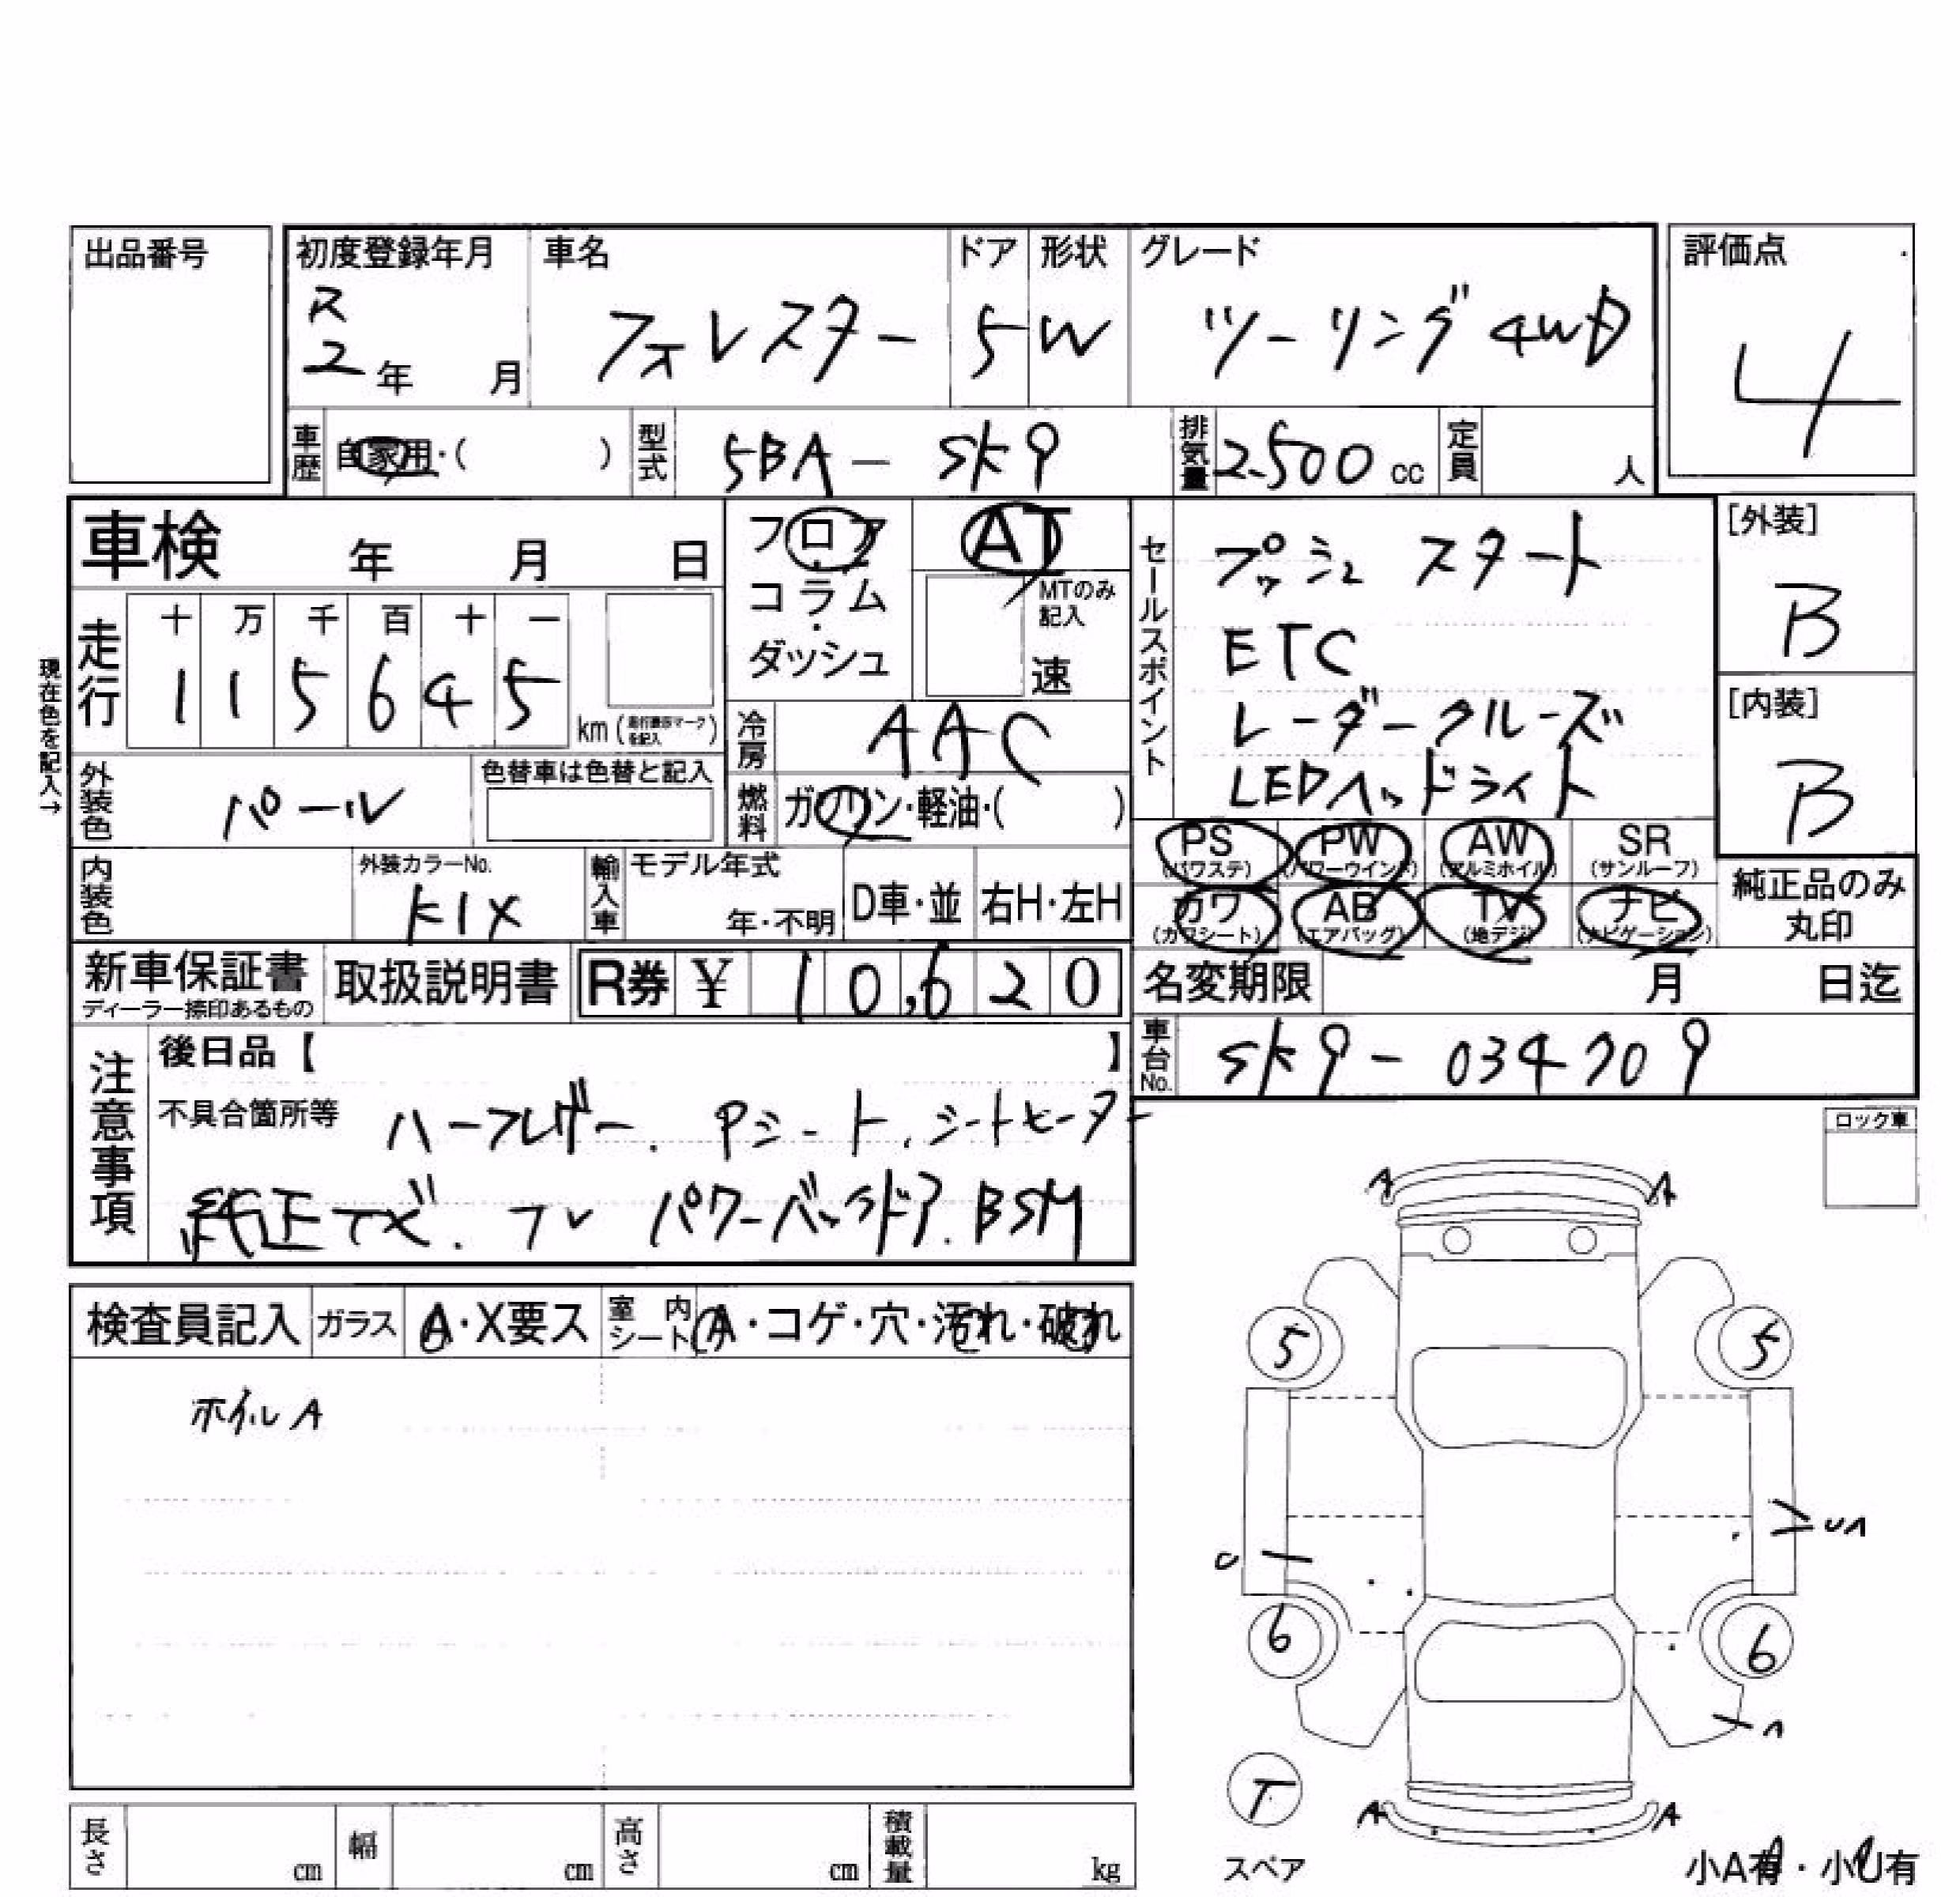 出品番号
初度登録年月
R
2 年 月
車名
フォレスター
ドア
5
形状
W
グレード
ツーリング 4WD
評価点
4
車歴 自家用・( )
型式 5BA - SK9
排気量 2500 cc
定員 人
車検 年 月 日
フロア・コラム・ダッシュ
AT
MTのみ記入
速
セールスポイント
プッシュ スタート
ETC
レーダークルーズ
LEDヘッドライト
[外装]
B
[内装]
B
現在色を記入→
走行
十 万 千 百 十 一
1 1 5 6 4 5
km (走行表示マークを記入)
冷房 AAC
燃料 ガソリン・軽油・( )
外装色 パール
色替車は色替と記入
内装色
外装カラーNo.
K1X
輸入車 モデル年式
年・不明
D車・並
右H・左H
PS (パワステ)
PW (パワーウインド)
AW (アルミホイル)
SR (サンルーフ)
カワ (カワシート)
AB (エアバッグ)
TV (地デジ)
ナビ (ナビゲーション)
純正品のみ
丸印
新車保証書
ディーラー捺印あるもの
取扱説明書
R券 ¥ 10,620
名変期限 月 日迄
車台No. SK9 - 034709
注意事項
後日品【 】
不具合箇所等 ハーフレザー. Pシート. シートヒーター
純正ナビ. TV パワーバックドア. BSM
ロック車
検査員記入
ガラス A・X要ス
室内シート A・コゲ・穴・汚れ・破れ
ホイルA
A A
5 5
6 6
T
スペア
A A
長さ cm
幅 cm
高さ cm
積載量 kg
小A有・小U有